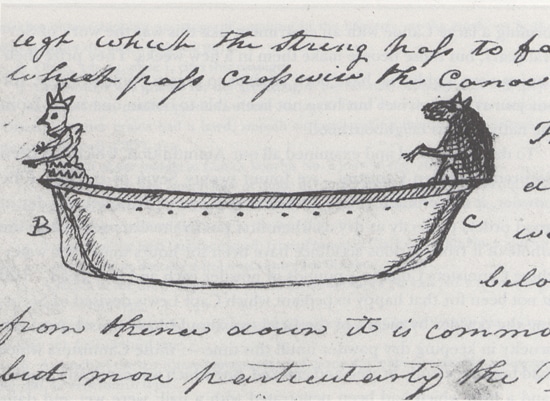 ugh which the string paſs to fa
which paſs croſswise the Canoe
B
C
d
belo
from thence down it is commo
but more particularly the